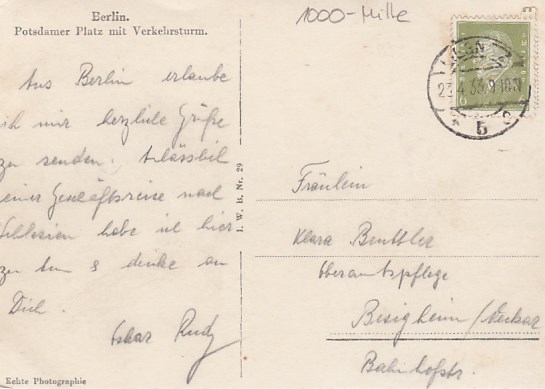 Berlin.
Potsdamer Platz mit Verkehrsturm.
1000-Mille
Aus Berlin erlaube
ich mir herzliche Grüße
zu senden. Anlässlich
einer Geschäftsreise nach
Schlesien habe ich hier
zu tun & denke an
Dich.
Oskar Rudy
I. W. B. Nr. 29
Echte Photographie
23.4.33.9-10
b
6
Fräulein
Klara Benttler
Oberamtspflege
Besigheim/Neckar
Bahnhofstr.